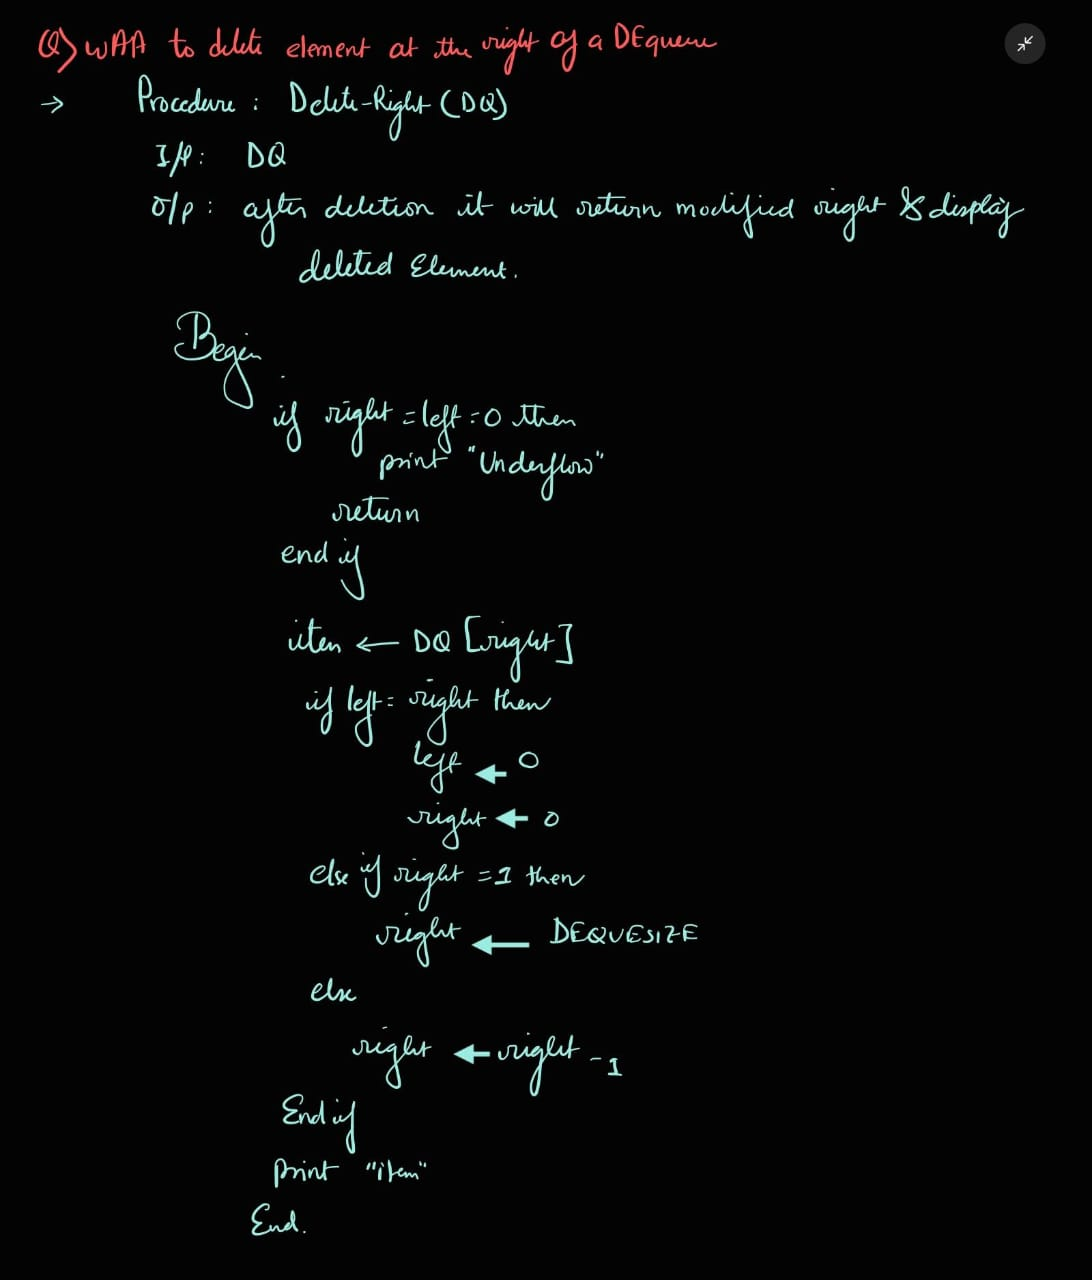 Q) WAA to delete element at the right of a DEqueue
→ Procedure : Delete-Right (DQ)
I/P : DQ
O/P : after deletion it will return modified right & display
deleted Element.
Begin
if right = left = 0 then
print "Underflow"
return
end if
item ← DQ [right]
if left = right then
left ← 0
right ← 0
else if right = 1 then
right ← DEQUESIZE
else
right ← right - 1
End if
print "item"
End.